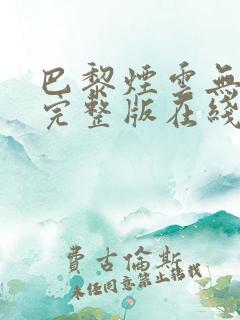 巴黎煙雲無
完整版在綫
費古倫斯
未經同意禁止轉載